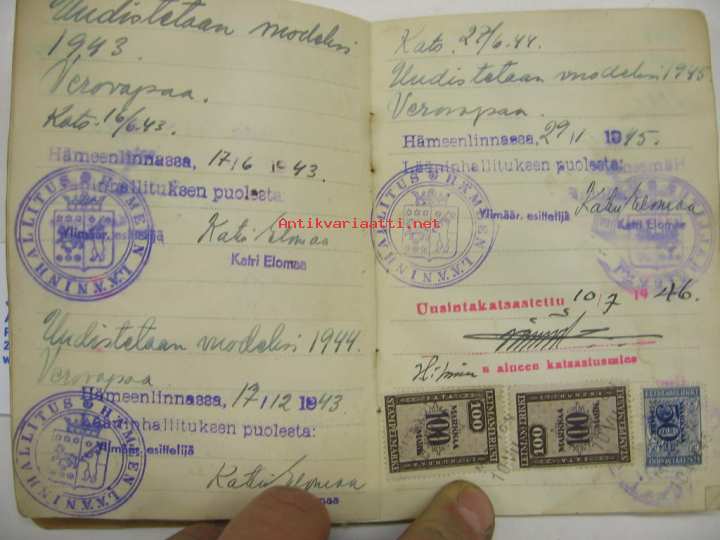 Uudistetaan vuodeksi
1943.
Verovapaa.
Kats. 16/6.43.
Hämeenlinnassa, 17/6 1943.
Lääninhallituksen puolesta:
HÄMEEN LÄÄNINHALLITUS
Ylimäär. esittelijä
Katri Elomaa
Katri Elomaa
Uudistetaan vuodeksi 1944.
Verovapaa
Hämeenlinnassa, 17/12 1943.
Lääninhallituksen puolesta:
Ylimäär. esittelijä
HÄMEEN LÄÄNINHALLITUS
Katri Elomaa
Kats. 27/6.44.
Uudistetaan vuodeksi 1945
Verovapaa.
Hämeenlinnassa, 29/1 1945.
Lääninhallituksen puolesta:
HÄMEEN LÄÄNINHALLITUS
Ylimäär. esittelijä
Katri Elomaa
Katri Elomaa
Antikvariaatti.net
Uusintakatsastettu 10/7 1946.
n alueen katsastusmies
LEIMAMERKKI
100
MARKKAA
100
MARK
STÄMPELMÄRKE
LEIMAMERKKI
100
MARKKAA
100
MARK
STÄMPELMÄRKE
50